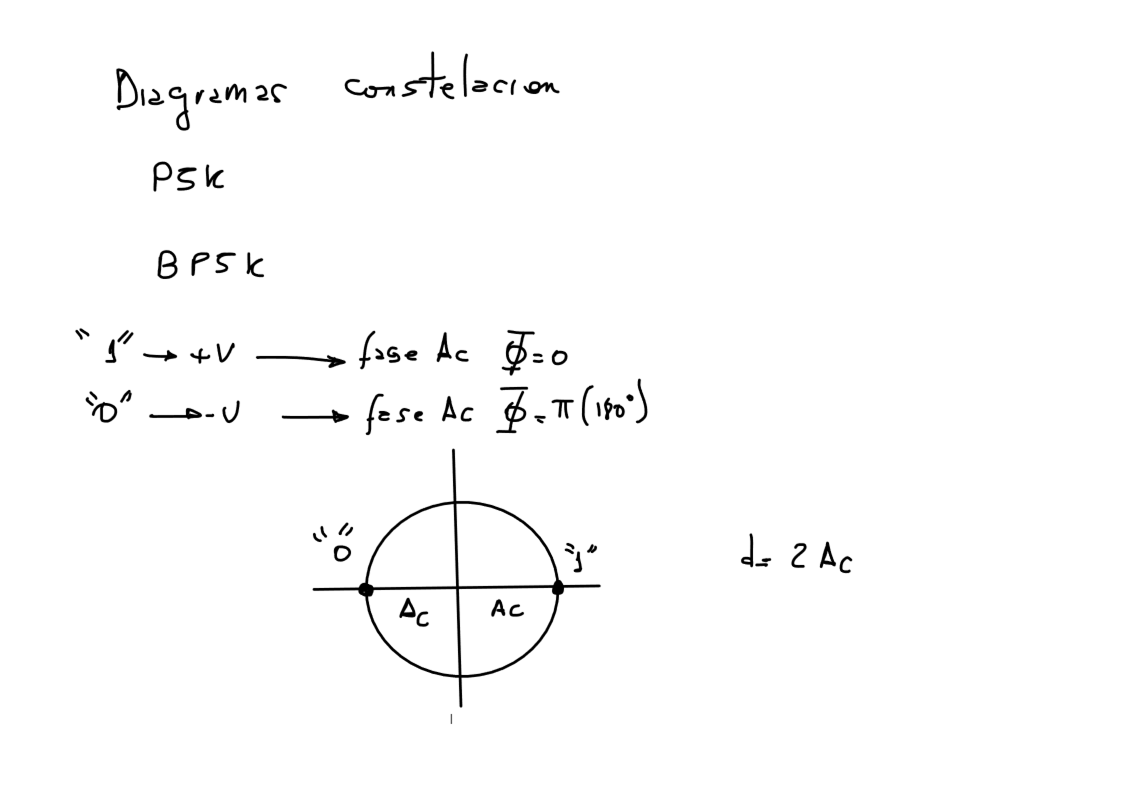 Diagramas constelacion
PSK
BPSK
"1" → +V → fase Ac Φ=0
"0" → -V → fase Ac Φ=π(180°)
"0"
"1"
d= 2 Ac
Ac Ac